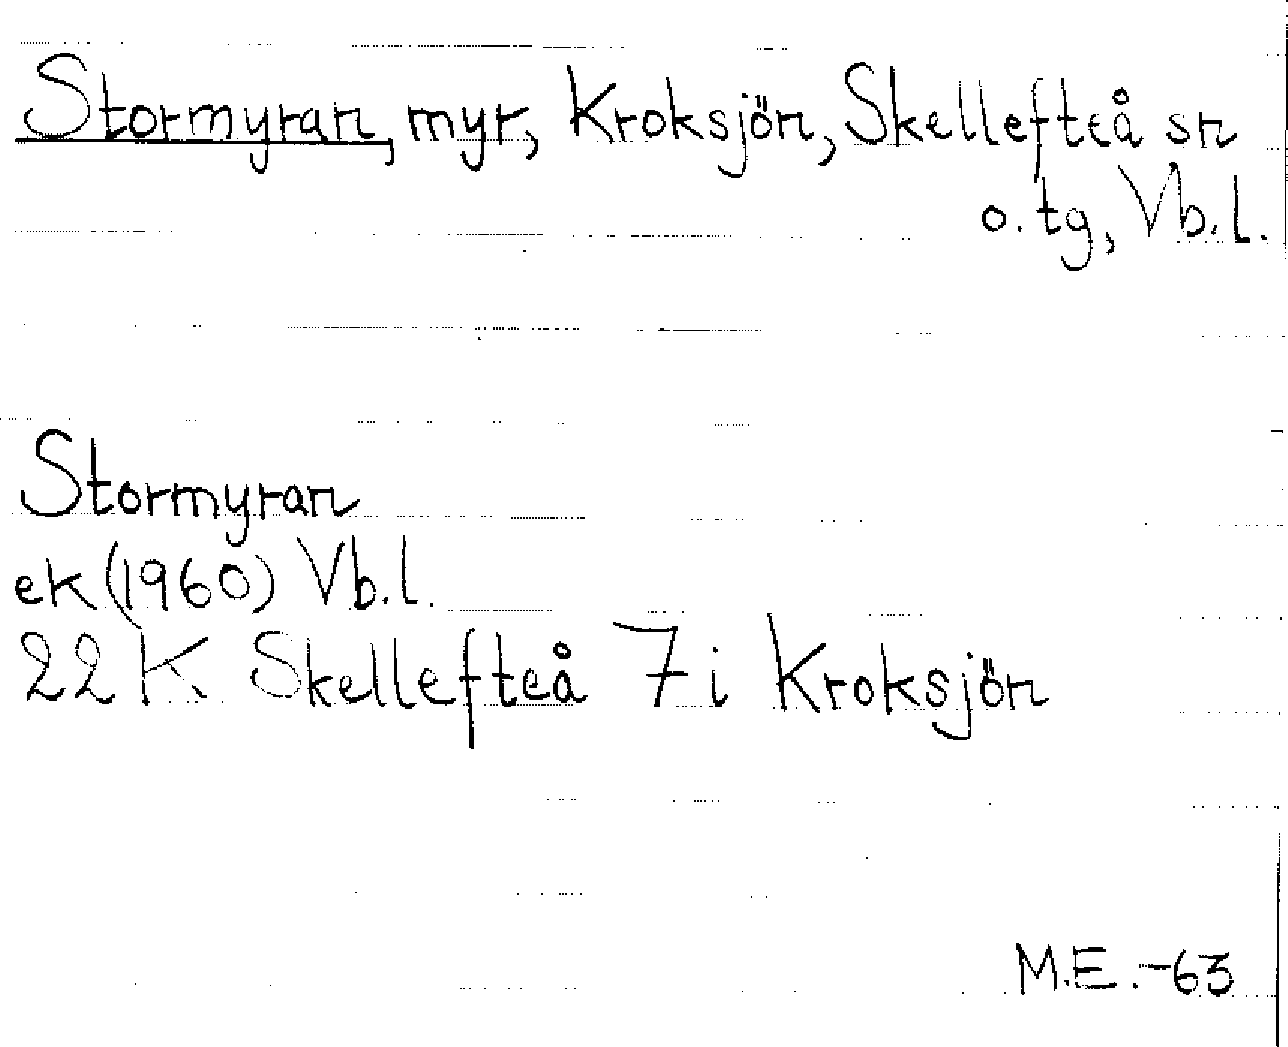 Stormyran, myr, Kroksjön, Skellefteå sn
o. tg, Vb.l.
Stormyran
ek (1960) Vb.l.
22 K Skellefteå 7 i Kroksjön
M.E. -63